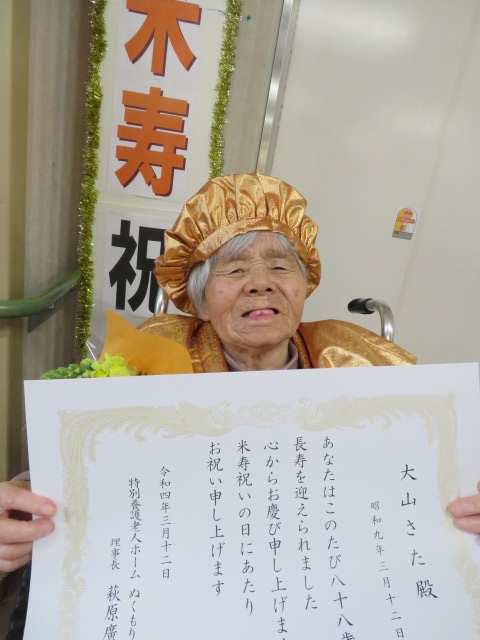 米寿
祝
大山さた殿
昭和九年三月十二日
あなたはこのたび八十八歳
長寿を迎えられました
心からお慶び申し上げま
米寿祝いの日にあたり
お祝い申し上げます
令和四年三月十二日
特別養護老人ホーム ぬくもり
理事長 萩原廣